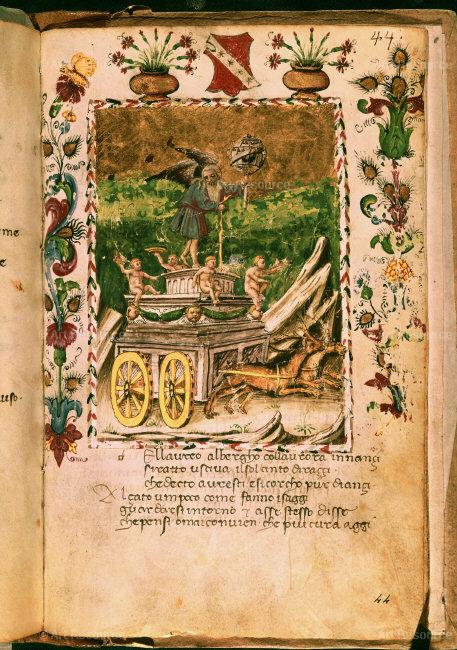 44
me
e
uso.
Ellaureo albergho collaurora innançi
siratto usciua ilsol cinto diraçi
chedecto auresti esicorcho pur diançi
Alçato unpoco come fanno isaggi
guardossi intorno & asse stesso disse
chepensi omai conuien che piu cura aggi
44
Art Resource